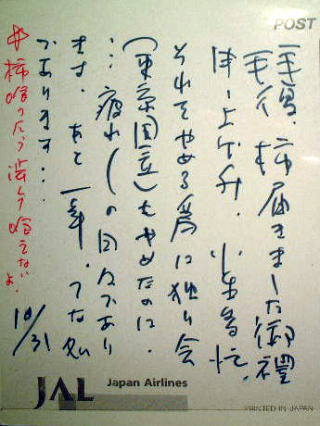 POST
柿届きました御禮
申し上げ升。小生多忙
それをやめる為に独り会
(東京国立)をやめたのに、
…疲れ(の日々であり
ます。あと一年。
であります…
柿喰ったら渋くて喰えないよ。
10/31
JAL Japan Airlines
PRINTED IN JAPAN